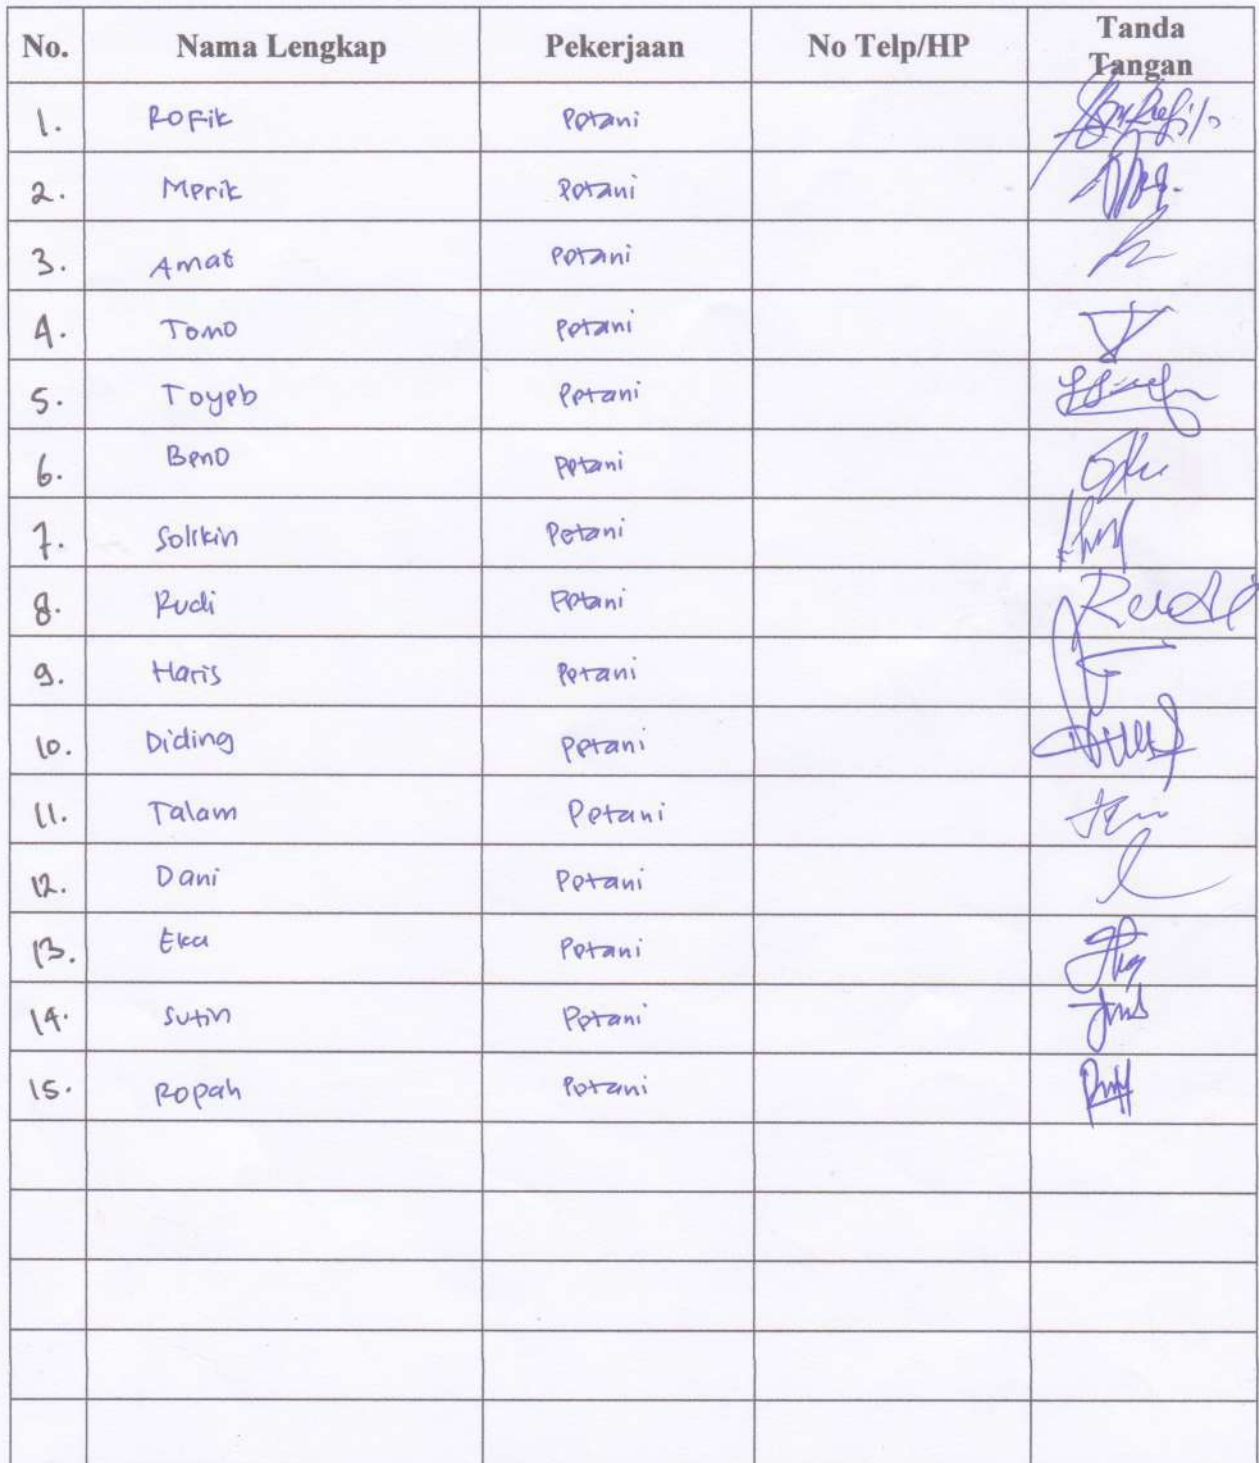 No. Nama Lengkap Pekerjaan No Telp/HP Tanda Tangan
1. Rofik Petani
2. Merik Petani
3. Amat Petani
4. Tomo Petani
5. Toyeb Petani
6. Beno Petani
7. Solikin Petani
8. Rudi Petani Rudi
9. Haris Petani
10. Diding Petani
11. Talam Petani
12. Dani Petani
13. Eka Petani
14. Sutin Petani
15. Ropah Petani